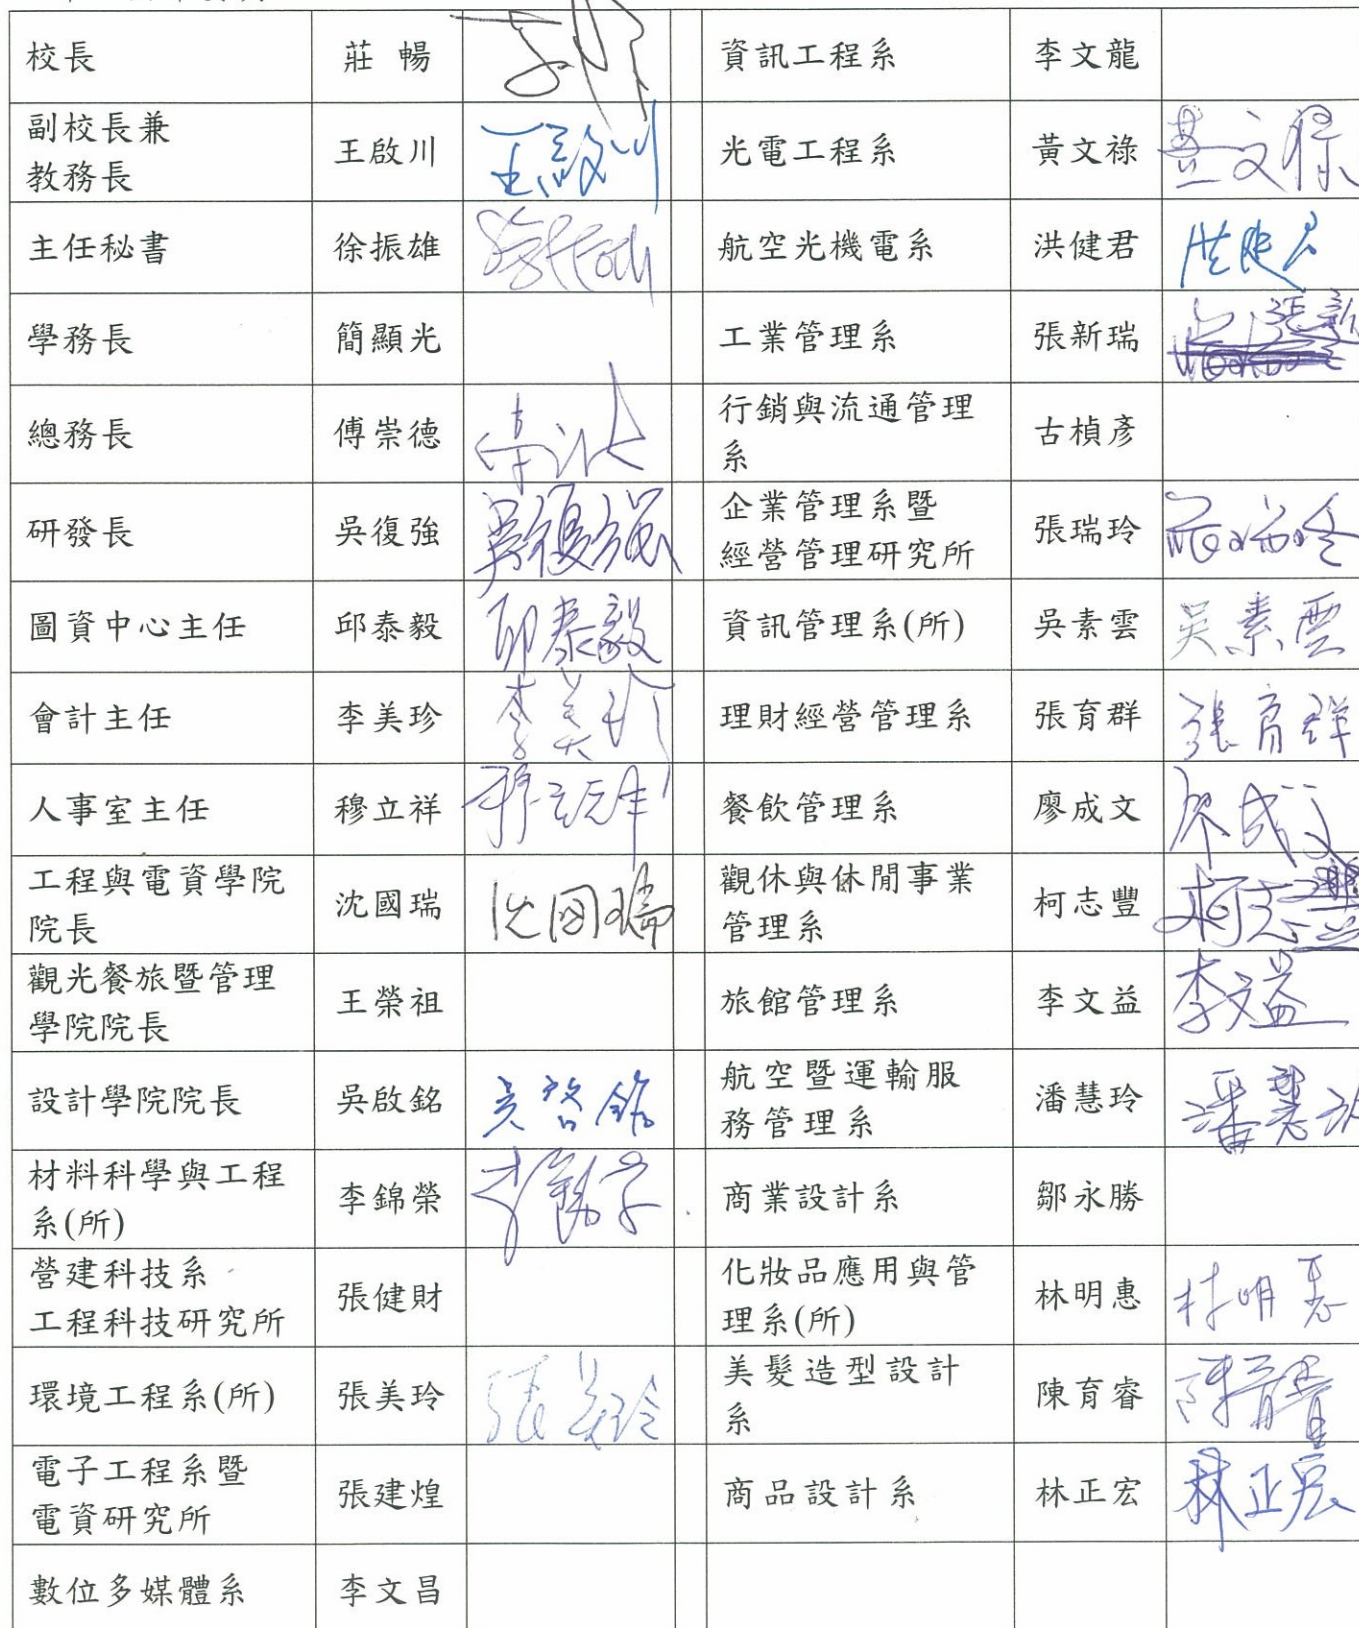 校長 莊暢 資訊工程系 李文龍
副校長兼
教務長 王啟川 王啟川 光電工程系 黃文祿 黃文祿
主任秘書 徐振雄 航空光機電系 洪健君 洪健君
學務長 簡顯光 工業管理系 張新瑞 張新
總務長 傅崇德 行銷與流通管理
系 古楨彥
研發長 吳復強 吳復強 企業管理系暨
經營管理研究所 張瑞玲
圖資中心主任 邱泰毅 邱泰毅 資訊管理系(所) 吳素雲 吳素雲
會計主任 李美珍 李美珍 理財經營管理系 張育群 張育群
人事室主任 穆立祥 餐飲管理系 廖成文 廖成文
工程與電資學院
院長 沈國瑞 沈国瑞 觀休與休閒事業
管理系 柯志豐 柯志豐
觀光餐旅暨管理
學院院長 王榮祖 旅館管理系 李文益 李文益
設計學院院長 吳啟銘 吳啓銘 航空暨運輸服
務管理系 潘慧玲 潘慧玲
材料科學與工程
系(所) 李錦榮 商業設計系 鄒永勝
營建科技系
工程科技研究所 張健財 化妝品應用與管
理系(所) 林明惠 林明惠
環境工程系(所) 張美玲 張美玲 美髮造型設計
系 陳育睿
電子工程系暨
電資研究所 張建煌 商品設計系 林正宏 林正宏
數位多媒體系 李文昌